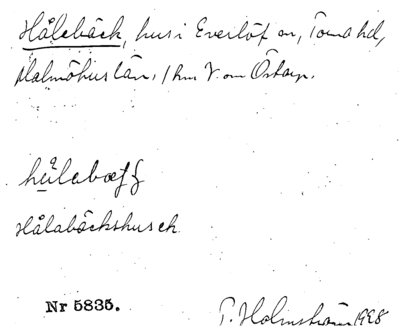 Hålebäck, hus i Everlöf sn, Torna hd,
Malmöhus län. 1 km V. om Östarp.
Hålabäckshusek
Nr 5835.
T. Holmström 1928